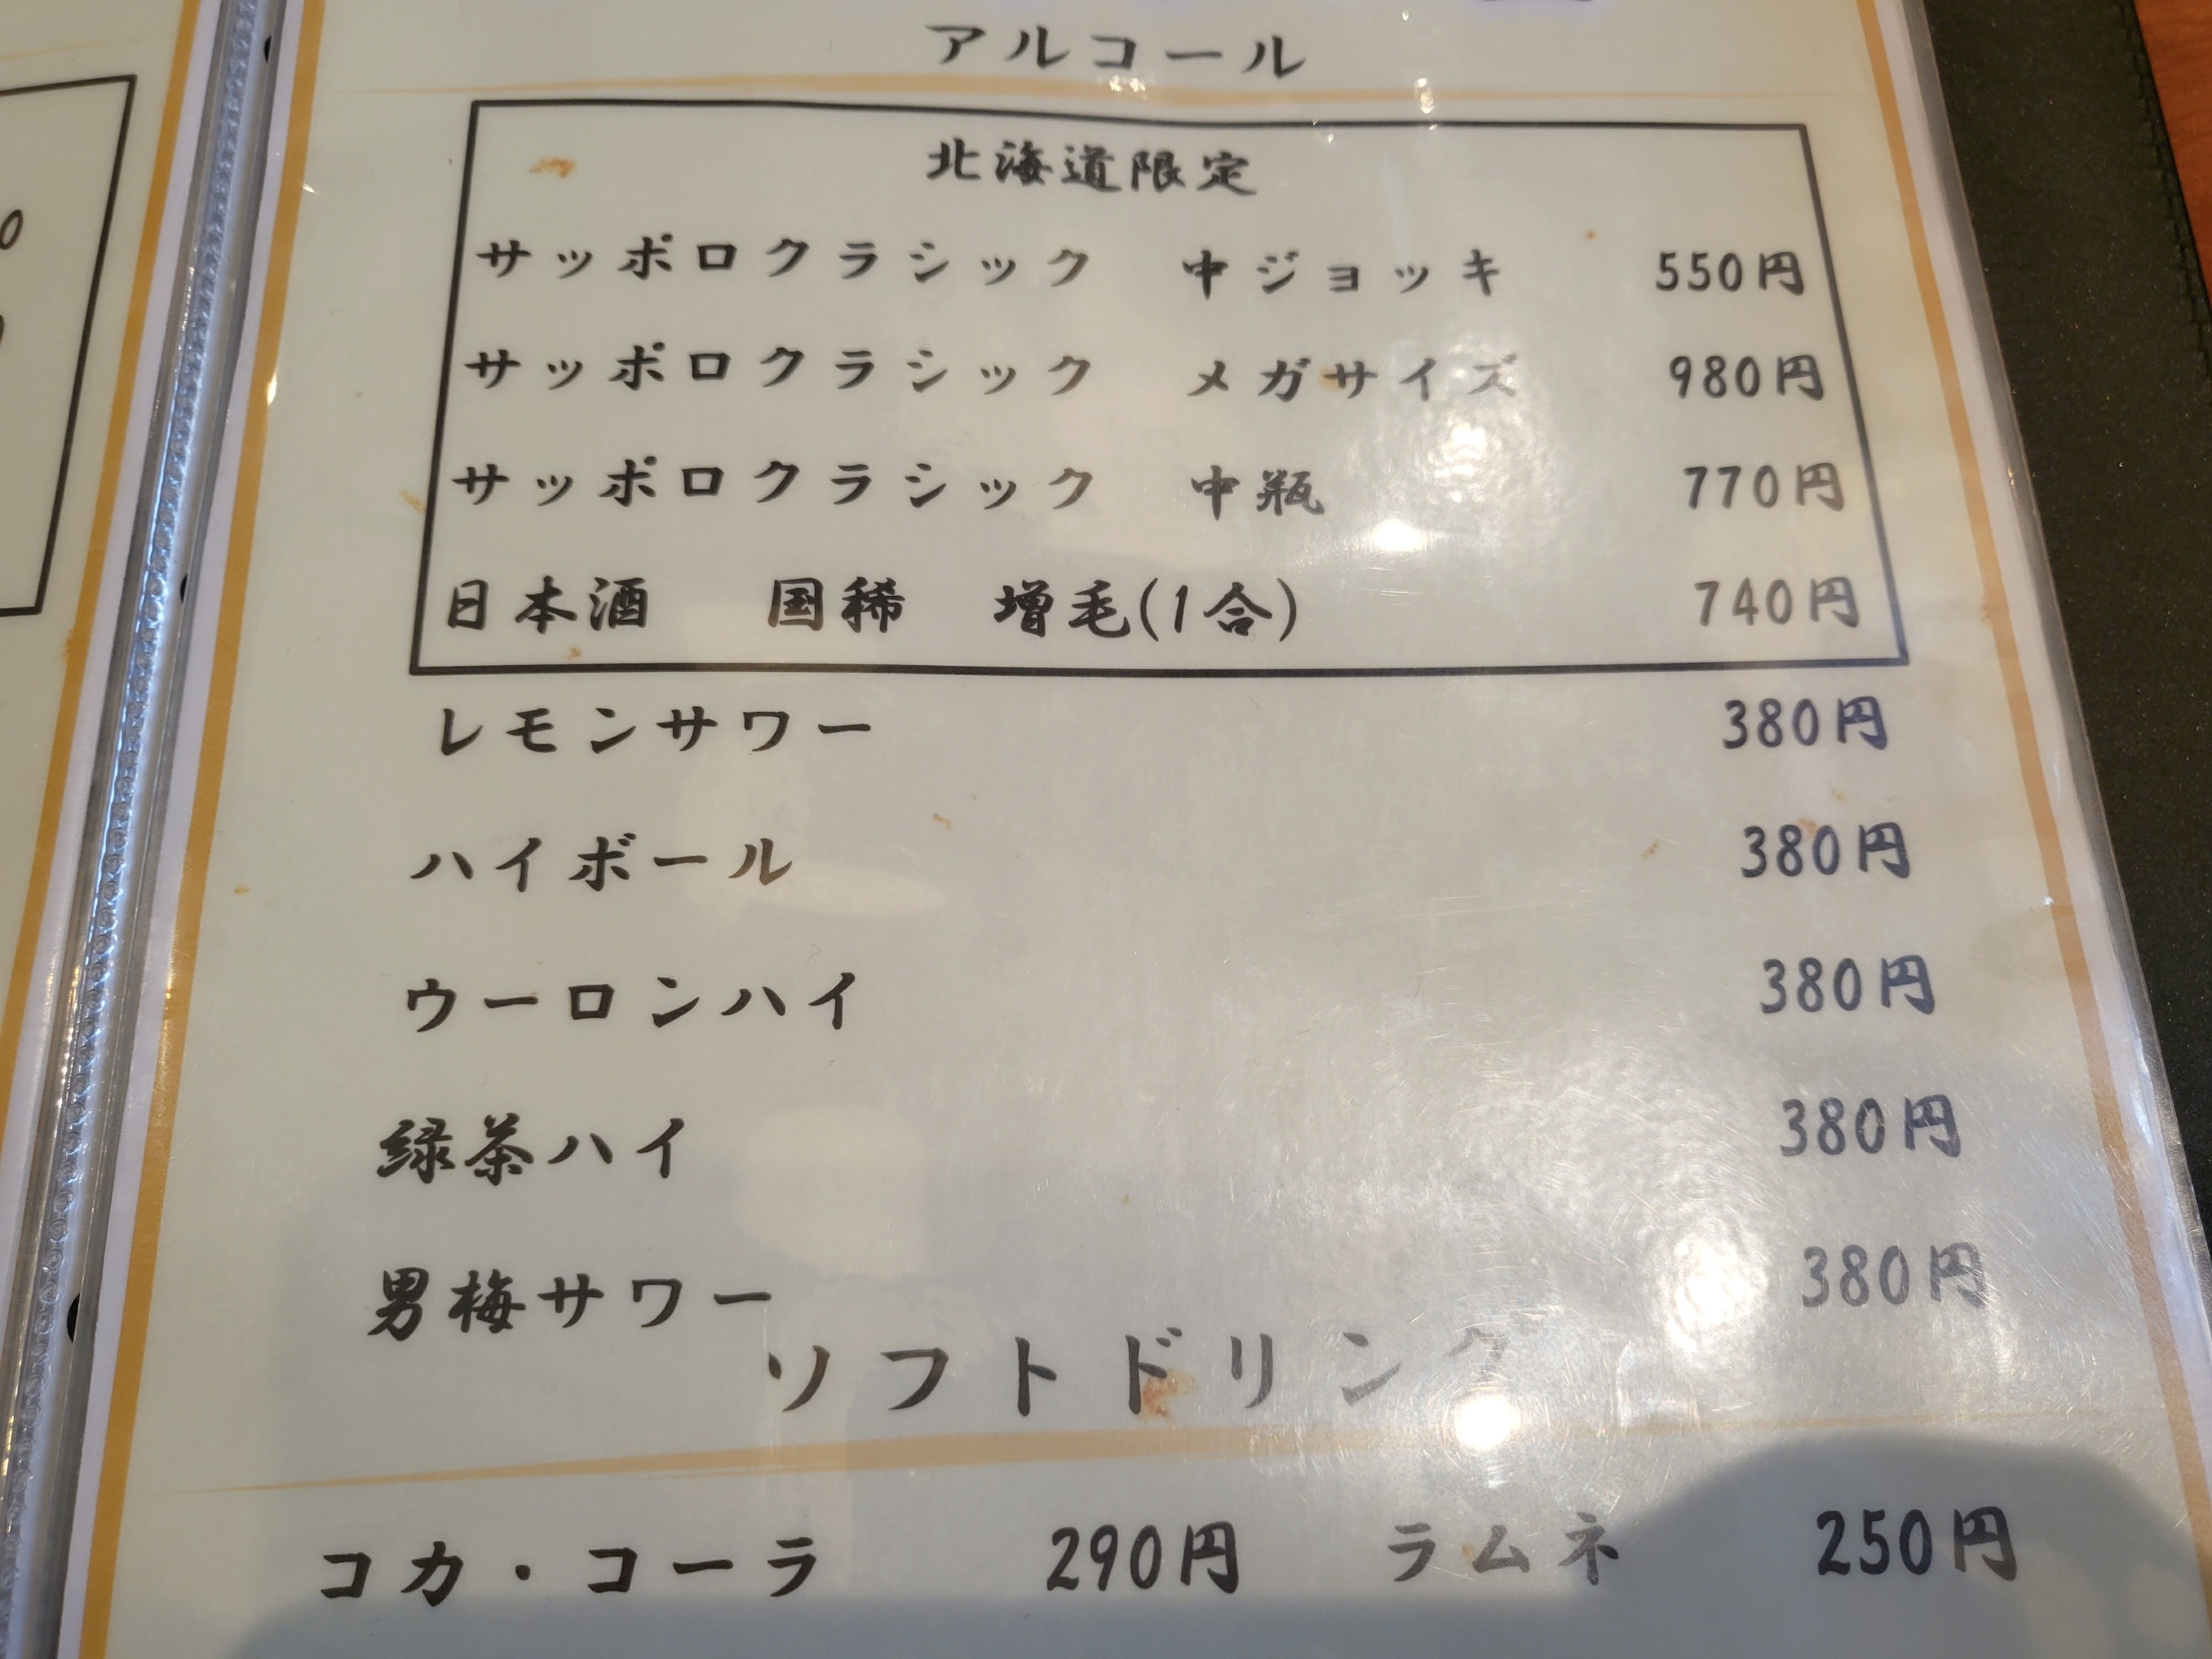 アルコール
北海道限定
サッポロクラシック 中ジョッキ 550円
サッポロクラシック メガサイズ 980円
サッポロクラシック 中瓶 770円
日本酒 国稀 増毛(1合) 740円
レモンサワー 380円
ハイボール 380円
ウーロンハイ 380円
緑茶ハイ 380円
男梅サワー 380円
ソフトドリンク
コカ・コーラ 290円 ラムネ 250円